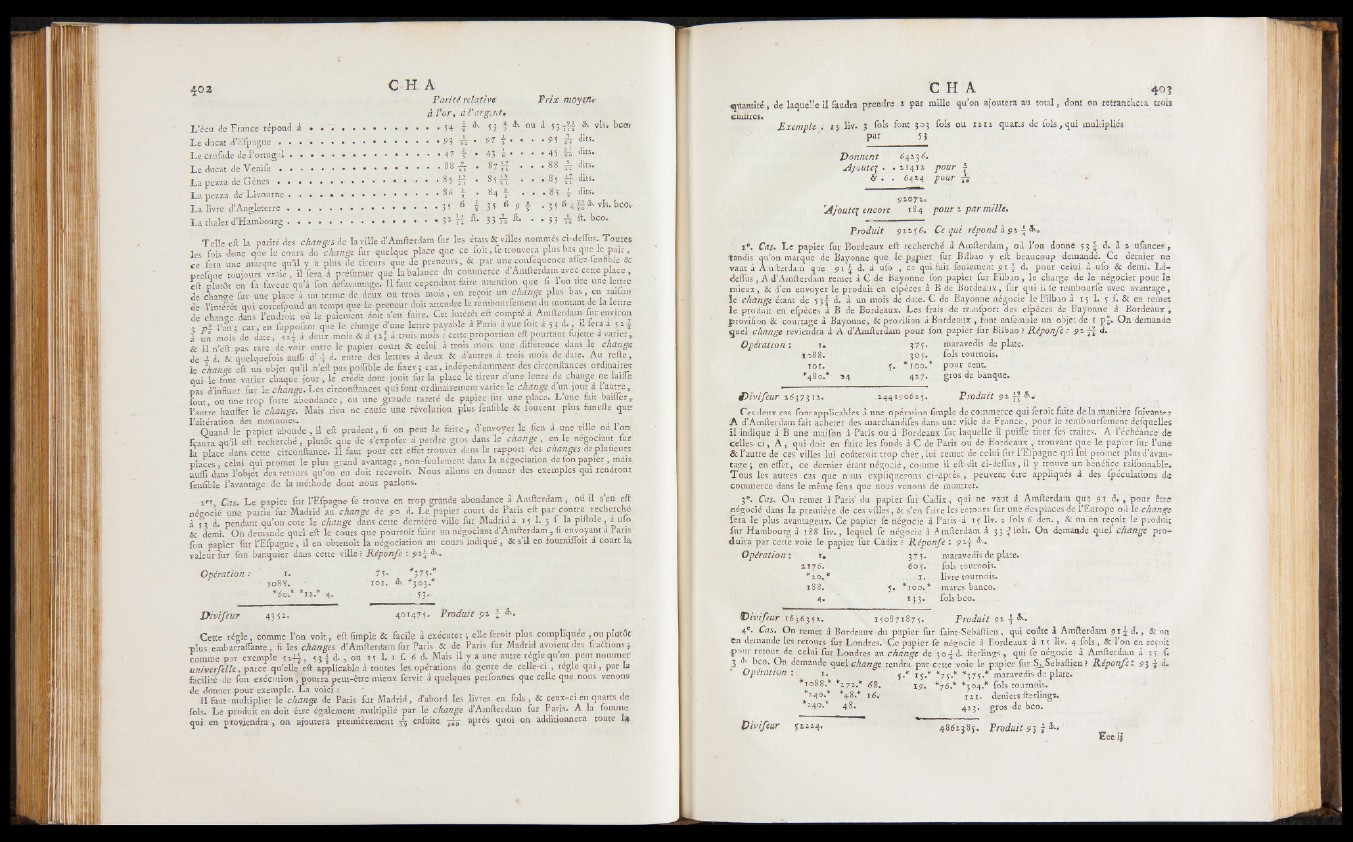 402
C H A
Parité relative Prix moyen.
à l'or, à l'argent.
L'écu de France répond à
Le ducat d'Espagne
Le crusade de Portugal
Le ducat de Venise
La pezza de Génes
La pezza de Livourne
La livre d'Angleterre
La thaler d'Hambourg
Telle est la parité des changes de la ville d'Amsterdam sur les états & villes nommés ci-dessus. Toutes
les fois donc que le cours du change sur quelque place que ce soit, se trouvera plus bas que le pair,
ce sera une marque qu'il y a plus de tireurs que de preneurs, & par une conséquence assez sensible &
presque toujours vraie, il sera à présumer que la balance du commerce d'Amsterdam avec cette place,
est plutôt en sa faveur qu'à son désavantage. Il faut cependant faire attention que si l'on tire une lettre
de change sur une place à un terme de deux ou trois mois, on reçoit un change plus bas, en raison
de l'intérêt qui correspond au temps que le preneur doit attendre le remboursement du montant de la lettre
de change dans l'endroit où le paiement doit s'en faire. Cet intérêt est compté à Amsterdam sur environ
à un mois de date, à deux mois & à à trois mois : cette proportion est pourtant sujette à varier,
& il n'est pas rare de voir entre le papier court & celui à trois mois une différence dans le change
de d. & quelquefois aussi d' d. entre des lettres à deux & d'autres à trois mois de date. Au reste,
le change est un objet qu'il n'est pas possible de fixer; car, indépendamment des circonstances ordinaires
qui le font varier chaque jour, le crédit dont jouit sur la place le tireur d'une lettre de change ne laisse
pas d'influer sur le change. Les circonstances qui font ordinairement varier le change d'un jour à l'autre,
sont, ou une trop forte abondance, ou une grande rareté de papier sur une place. L'une fait baisser,
l'autre hausser le change. Mais rien ne cause une révolution plus sensible & souvent plus funeste que
l'altération des monnoies.
Quand le papier abonde, il est prudent, si on peut le faire, d'envoyer le sien à une ville où l'on
sçaura qu'il est recherché, plutôt que de s'exposer à perdre gros dans le change, en le négociant sur
la place dans cette circonstance. Il faut pour cet effet trouver dans le rapport des changes de plusieurs
places, celui qui promet le plus grand avantage, non-seulement dans la négociation de son papier, mais
aussi dans l'objet des retours qu'on en doit recevoir. Nous allons en donner des exemples qui rendront
sensible l'avantage de la méthode dont nous parlons.
1er. Cas. Le papier sur l'Espagne se trouve en trop grande abondance à Amsterdam, où il s'en est
négocié une partie sur Madrid au change de 90 d. Le papier court de Paris est par contre recherché
à 53 d. pendant qu'on cote le change dans cette dernière ville sur Madrid à 15 l. 3 s. la pistole, à uso
& demi. On demande quel est le cours que pourroit faire un négociant d'Amsterdam, si envoyant à Paris
son papier sur l'Espagne, il en obtenoit la négociation au cours indiqué, & s'il en fournissoit à court la
valeur sur son banquier dans cette ville ? Réponse :
Opération : 1. 75. *375.*
1088. 101. *303.*
*60.* *12.* 4. 53.
Diviseur 4352. 401475. Produit
Cette régle, comme l'on voit, est simple & facile à exécuter; elle seroit plus compliquée, ou plutôt
plus embarrassante, si les changes d'Amsterdam sur Paris & de Paris sur Madrid avoient des fractions;
comme par exemple d., ou 15 l. 1 s. 6 d. Mais il y a une autre régle qu'on peut nommer
universelle, parce qu'elle est applicable à toutes les opérations du genre de celle-ci, régle qui, par la
facilité de son exécution, pourra peut-être mieux servir à quelques personnes que celle que nous venons
de donner pour exemple. La voici :
Il faut multiplier le change de Paris sur Madrid, d'abord les livres en sols, & ceux-ci en quarts de
sols. Le produit en doit être également multiplié par le change d'Amsterdam sur Paris. A la somme
qui en proviendra, on ajoutera premièrement ensuite après quoi on additionnera toute la
C H A
403
quantité, de laquelle il faudra prendre 2 par mille qu'on ajoutera au total, dont on retranchera trois
chiffres.
Exemple : 15 liv. 3 sols font 303 sols ou 1212 quarts de sols, qui multipliés
par 53
Donnent 64236.
Ajoutez . . 21412 pour
& . . 6424 pour
92072.
Ajoutez encore 184 pour 2 par mille.
Produit 92256. Ce qui répond à
2e. Cas. Le papier sur Bordeaux est recherché à Amsterdam, où l'on donne d. à 2 usances,
tandis qu'on marque de Bayonne que le papier sur Bilbao y est beaucoup demandé. Ce dernier ne
vaut à Amsterdam que d. à uso, ce qui fait seulement d. pour celui à uso & demi. Là-
dessus, A d'Amsterdam remet à C de Bayonne son papier sur Bilbao, le charge de le négocier pour le
mieux, & d'en envoyer le produit en espèces à B de Bordeaux, sur qui il se rembourse avec avantage,
le change étant de d. à un mois de date. C de Bayonne négocie le Bilbao à 15 l. 5 s. & en remet
le produit en espèces à B de Bordeaux. Les frais de transport des espèces de Bayonne à Bordeaux,
provision & courtage à Bayonne, & provision à Bordeaux, font ensemble un objet de 1 p°. On demande
quel change reviendra à A d'Amsterdam pour son papier sur Bilbao ? Réponse :
Opération : 1. 375. maravedis de plate.
1088. 305. sols tournois.
101. 5. *100.* pour cent.
*480.* 24 427. gros de banque.
Diviseur 2637312. 244190625. Produit
Ces deux cas sont applicables à une opération simple de commerce qui seroit faite de la manière suivante :
A d'Amsterdam fait acheter des marchandises dans une ville de France, pour le remboursement desquelles
il indique à B une maison à Paris ou à Bordeaux sur laquelle il puisse tirer ses traites. A l'échéance de
celles-ci, A, qui doit en faire les fonds à C de Paris ou de Bordeaux, trouvant que le papier sur l'une
& l'autre de ces villes lui coûteroit trop cher, lui remet de celui sur l'Espagne qui lui promet plus d'avan-
tage; en effet, ce dernier étant négocié, comme il est dit ci-dessus, il y trouve un bénéfice raisonnable.
Tous les autres cas que nous expliquerons ci-après, peuvent être appliqués à des spéculations de
commerce dans le même sens que nous venons de montrer.
3e. Cas. On remet à Paris du papier sur Cadix, qui ne vaut à Amsterdam que 91 d., pour être
négocié dans la première de ces villes, & s'en faire les retours sur une des places de l'Europe où le change
sera le plus avantageux. Ce papier se négocie à Paris à 15 liv. 2 sols 6 den., & on en reçoit le produit
sur Hambourg à 188 liv., lequel se négocie à Amsterdam à sols. On demande quel change pro-
duira par cette voie le papier sur Cadix ? Réponse :
Opération : 1. 375. maravedis de plate.
2176. 605. sols tournois.
*20.* 1. livre tournois.
188. 5. *100.* marcs banco.
4. 133. sols bco.
Diviseur 1636352. 150871875. Produit
4e. Cas. On remet à Bordeaux du papier sur saint-Sebastien, qui coûte à Amsterdam d., & on
en demande les retours sur Londres. Ce papier se négocie à Bordeaux à 15 liv. 4 sols, & l'on en reçoit
pour retour de celui sur Londres au change de d. sterlings, qui se négocie à Amsterdam à 35 s.
3 bco. On demande quel change rendra par cette voie le papier sur S. Sebastien ? Réponse :
Opération : 1. 5.* 15.* *75.* *375.* maravedis de plate.
*1088.* *272.* 68. 19. *76.* *304.* sols tournois.
*240.* *48.* 16. 121. deniers sterlings.
*240.* 48. 423. gros de bco.
Diviseur 52224. 4862385. Produit
Eee ij